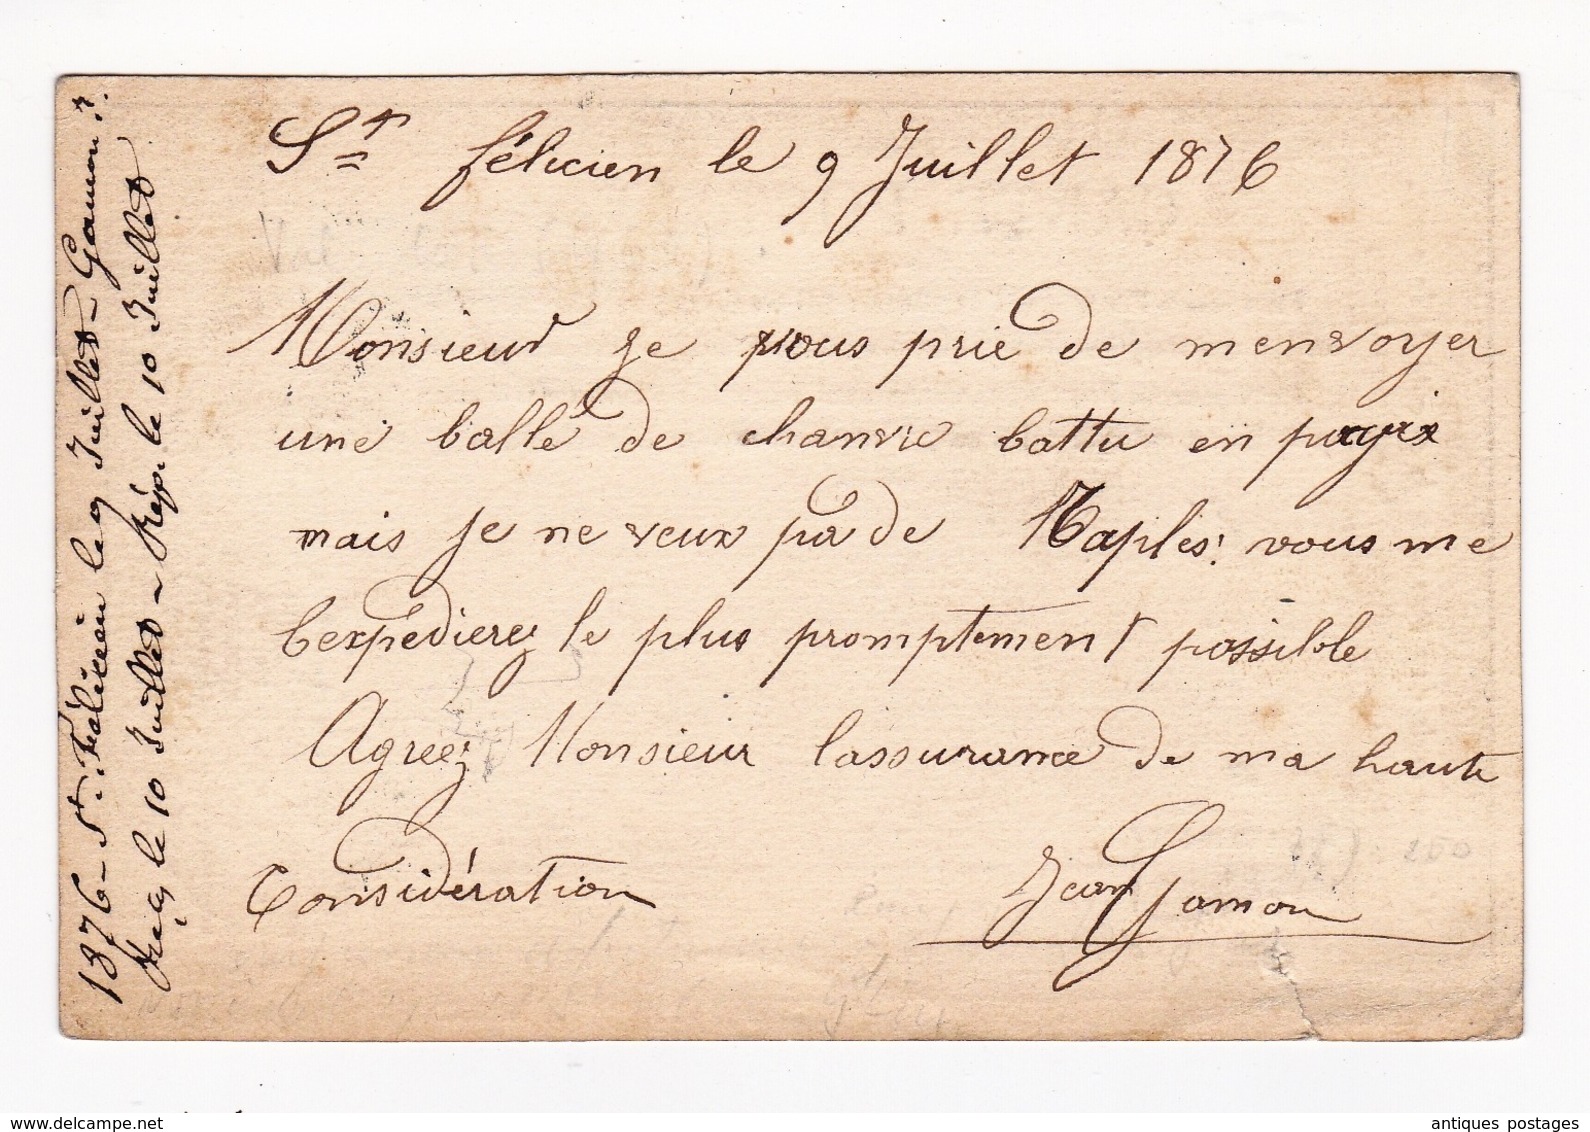 St félicien le 9 Juillet 1876
Monsieur je vous prie de menvoyer
une balle de chanvre battu en
mais je ne veux pa de Naples: vous me
lexpedierez le plus promptement possible
Agreez Monsieur lassurance de ma haute
Considération
Jean Gamon
1876 - St. Félicien le 9 Juillet - Gamon J.
Reç. le 10 Juillet - Rép. le 10 Juillet
antiques postages